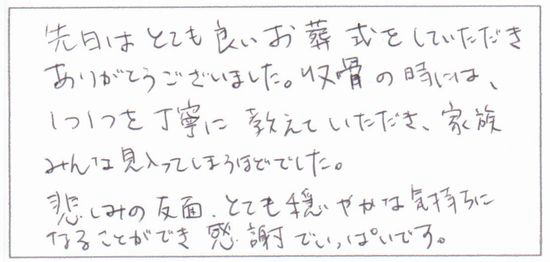 先日はとても良いお葬式をしていただき
ありがとうございました。収骨の時には、
1つ1つを丁寧に教えていただき、家族
みんな見入ってしまうほどでした。
悲しみの反面、とても穏やかな気持ちに
なることができ感謝でいっぱいです。